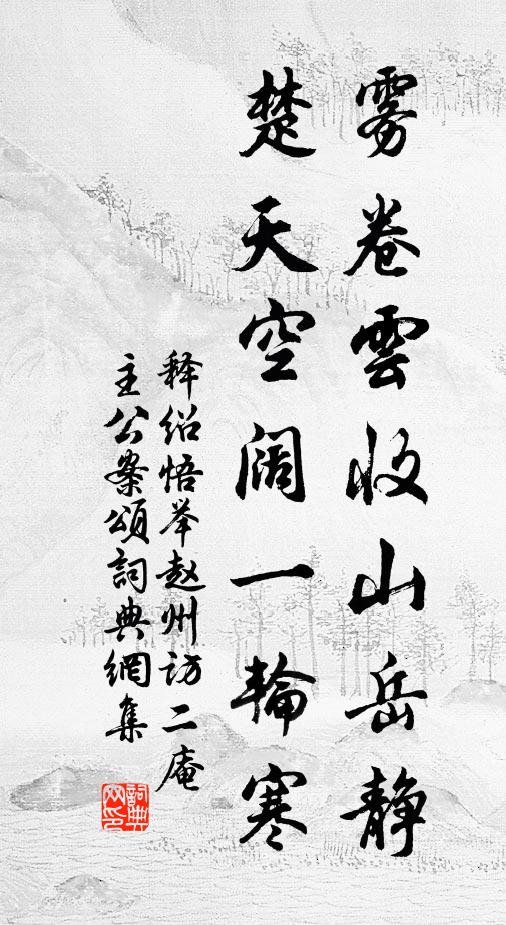 雾卷雲收山岳静
楚天空阔一輪寒
释绍悟举赵州访二庵
主公案頌詞典網集
詞典网印